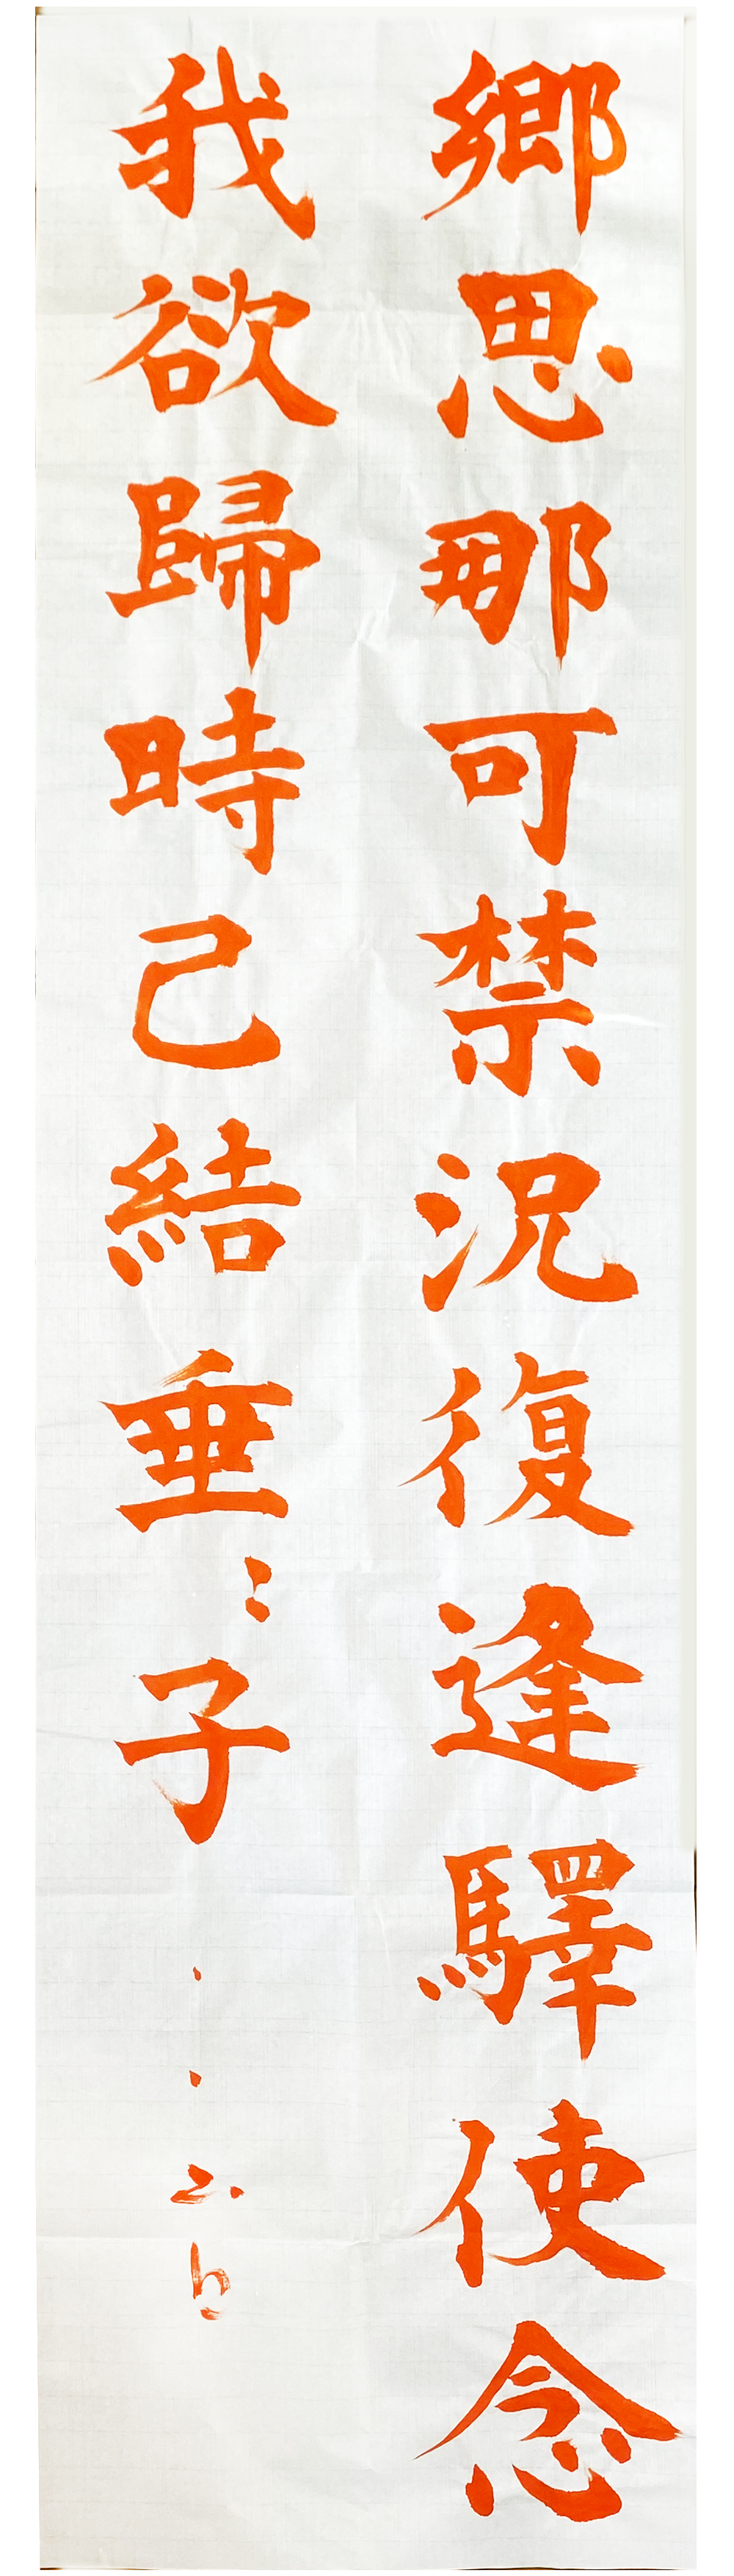 鄉思那可禁況復逢驛使念
我欲歸時己結垂〻子